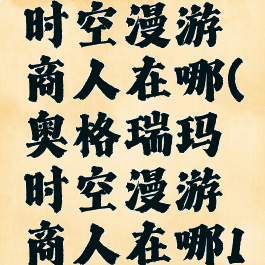 时空漫游
商人在哪(
奥格瑞玛
时空漫游
商人在哪1